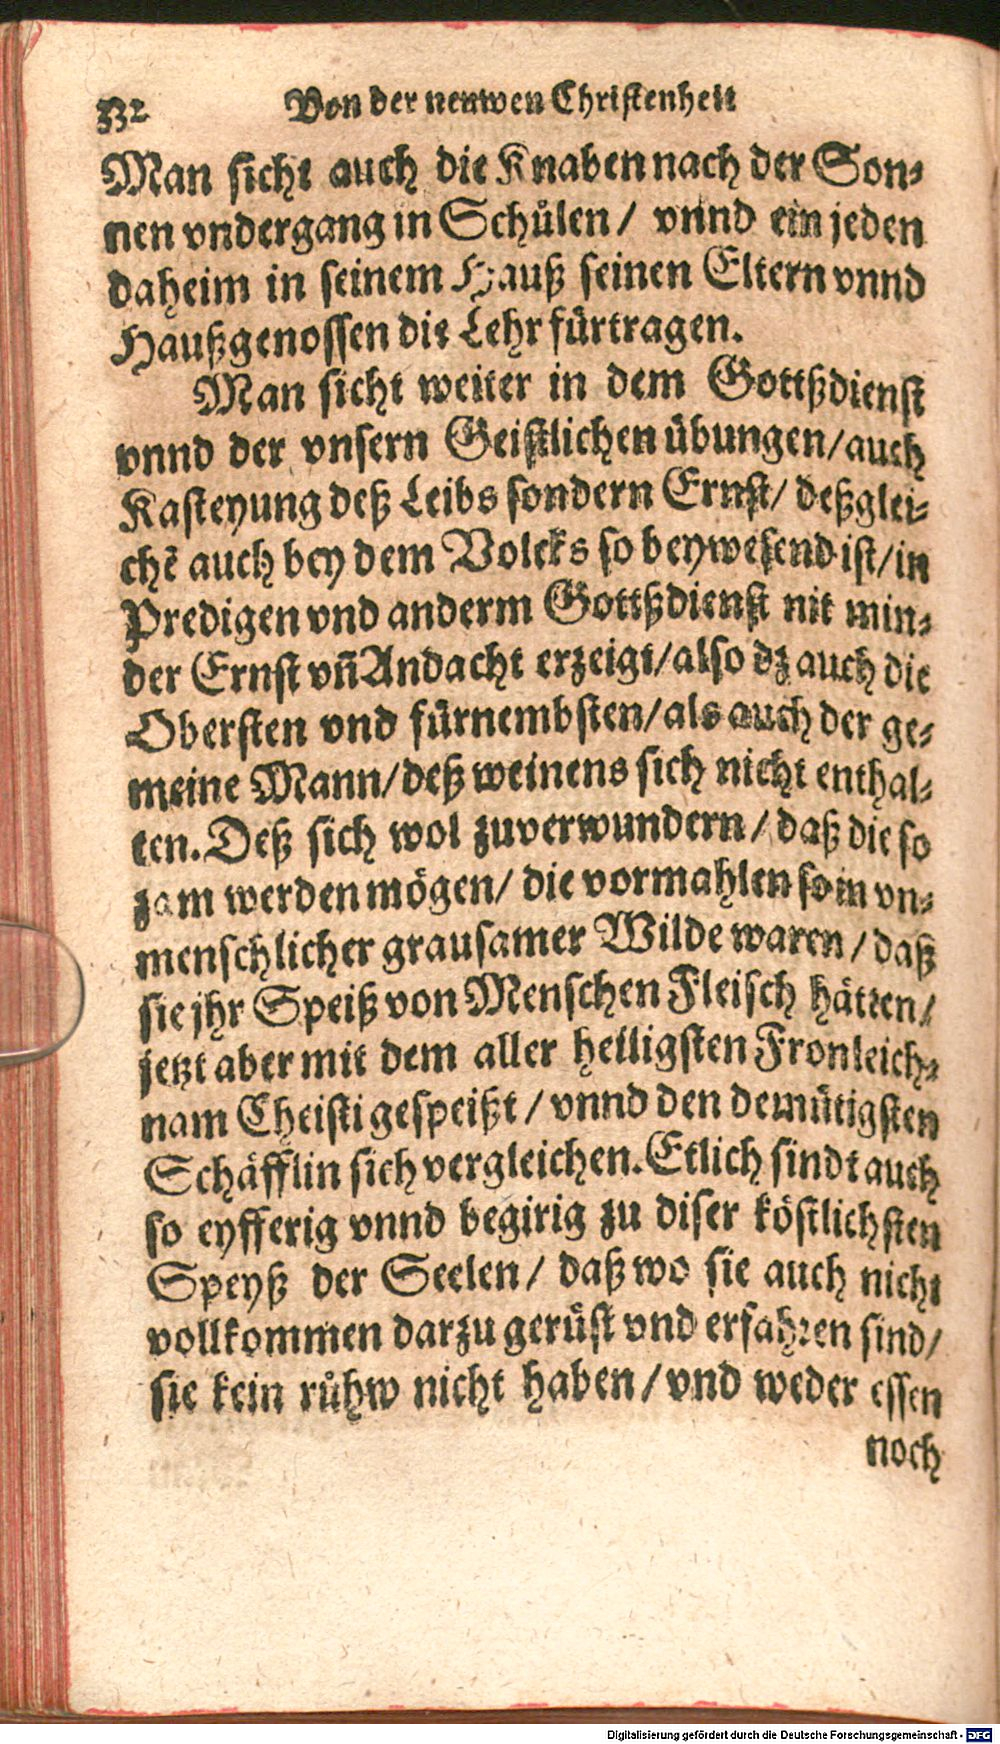 332 Von der neuwen Christenheit
Man sicht auch die Knaben nach der Son⸗
nen vndergang in Schůlen / vnnd ein jeden
daheim in seinem Hauß seinen Eltern vnnd
Haußgenossen die Lehr fürtragen.
Man sicht weiter in dem Gottßdienst
vnnd der vnsern Geistlichen übungen / auch
Kasteyung deß Leibs sondern Ernst / deßglei⸗
chē auch bey dem Volcks so beywesend ist / in
Predigen vnd anderm Gottßdienst nit min⸗
der Ernst vn̄ Andacht erzeigt / also dz auch die
Obersten vnd fürnembsten / als auch der ge⸗
meine Mann / deß weinens sich nicht enthal⸗
ten. Deß sich wol zuverwundern / daß die so
zam werden mögen / die vormahlen so in vn⸗
menschlicher grausamer Wilde waren / daß
sie jhr Speiß von Menschen Fleisch hätten /
jetzt aber mit dem aller heiligsten Fronleich⸗
nam Christi gespeißt / vnnd den demütigsten
Schäfflin sich vergleichen. Etlich sindt auch
so eyfferig vnnd begirig zu diser köstlichsten
Speyß der Seelen / daß wo sie auch nicht
vollkommen darzu gerüst vnd erfahren sind /
sie kein růhw nicht haben / vnd weder essen
noch
Digitalisierung gefördert durch die Deutsche Forschungsgemeinschaft - DFG